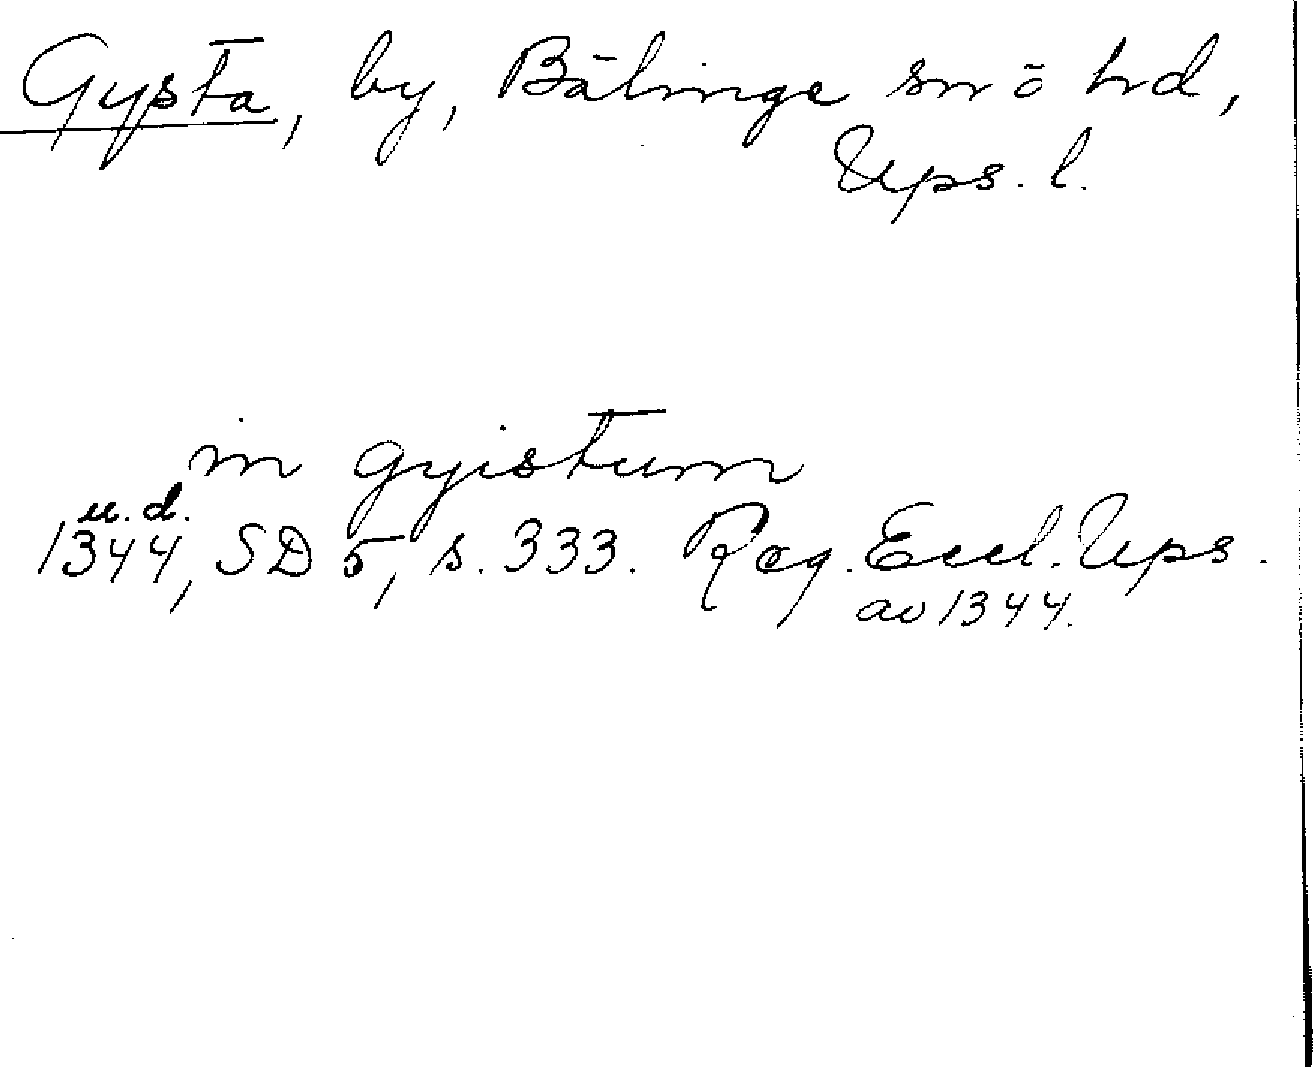 Gysta, by, Bälinge sn ō hd,
Ups. l.
in gyistum
u. d.
1344, SD 5, s. 333. Reg. Eccl. Ups.
av 1344.